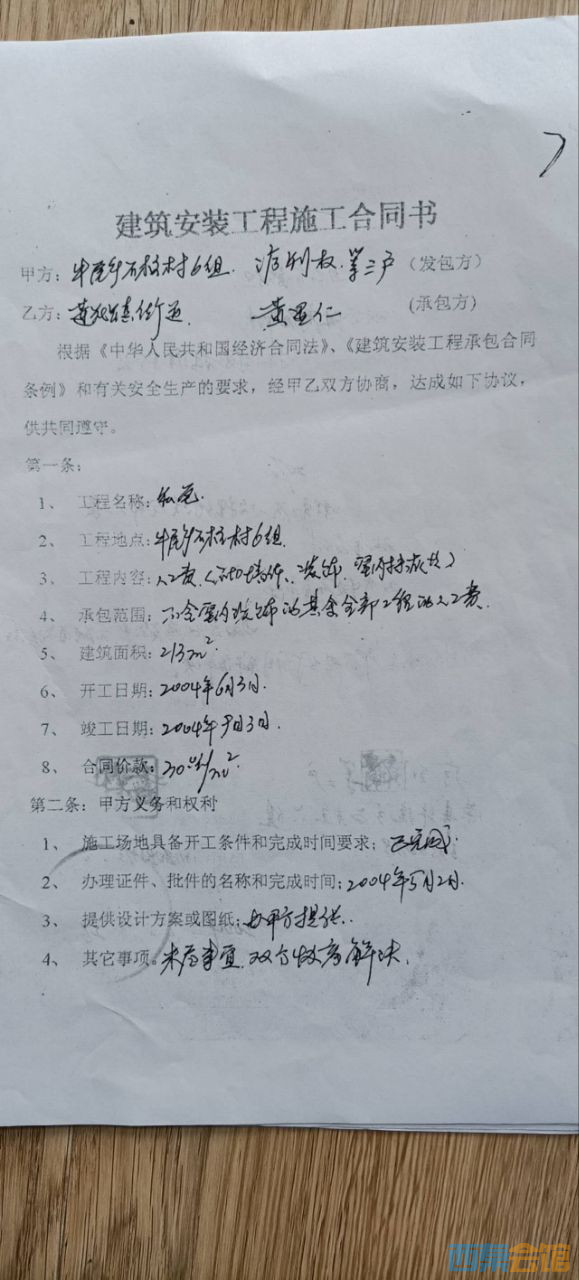 建筑安装工程施工合同书
甲方：牛尾乡石柱村6组 等三户（发包方）
乙方： 街道 黄显仁 （承包方）
根据《中华人民共和国经济合同法》、《建筑安装工程承包合同
条例》和有关安全生产的要求，经甲乙双方协商，达成如下协议，
供共同遵守。
第一条：
1、 工程名称：私宅.
2、 工程地点：牛尾乡石柱村6组.
3、 工程内容：人工费
4、 承包范围：不含室内装饰的其余全部工程的人工费.
5、 建筑面积：213m².
6、 开工日期：2004年6月3日.
7、 竣工日期：2004年9月3日.
8、 合同价款： /m²
第二条：甲方义务和权利
1、 施工场地具备开工条件和完成时间要求；已完成.
2、 办理证件、批件的名称和完成时间；2004年5月2日.
3、 提供设计方案或图纸；由甲方提供.
4、 其它事项。未尽事宜.双方协商解决.
西祠会馆